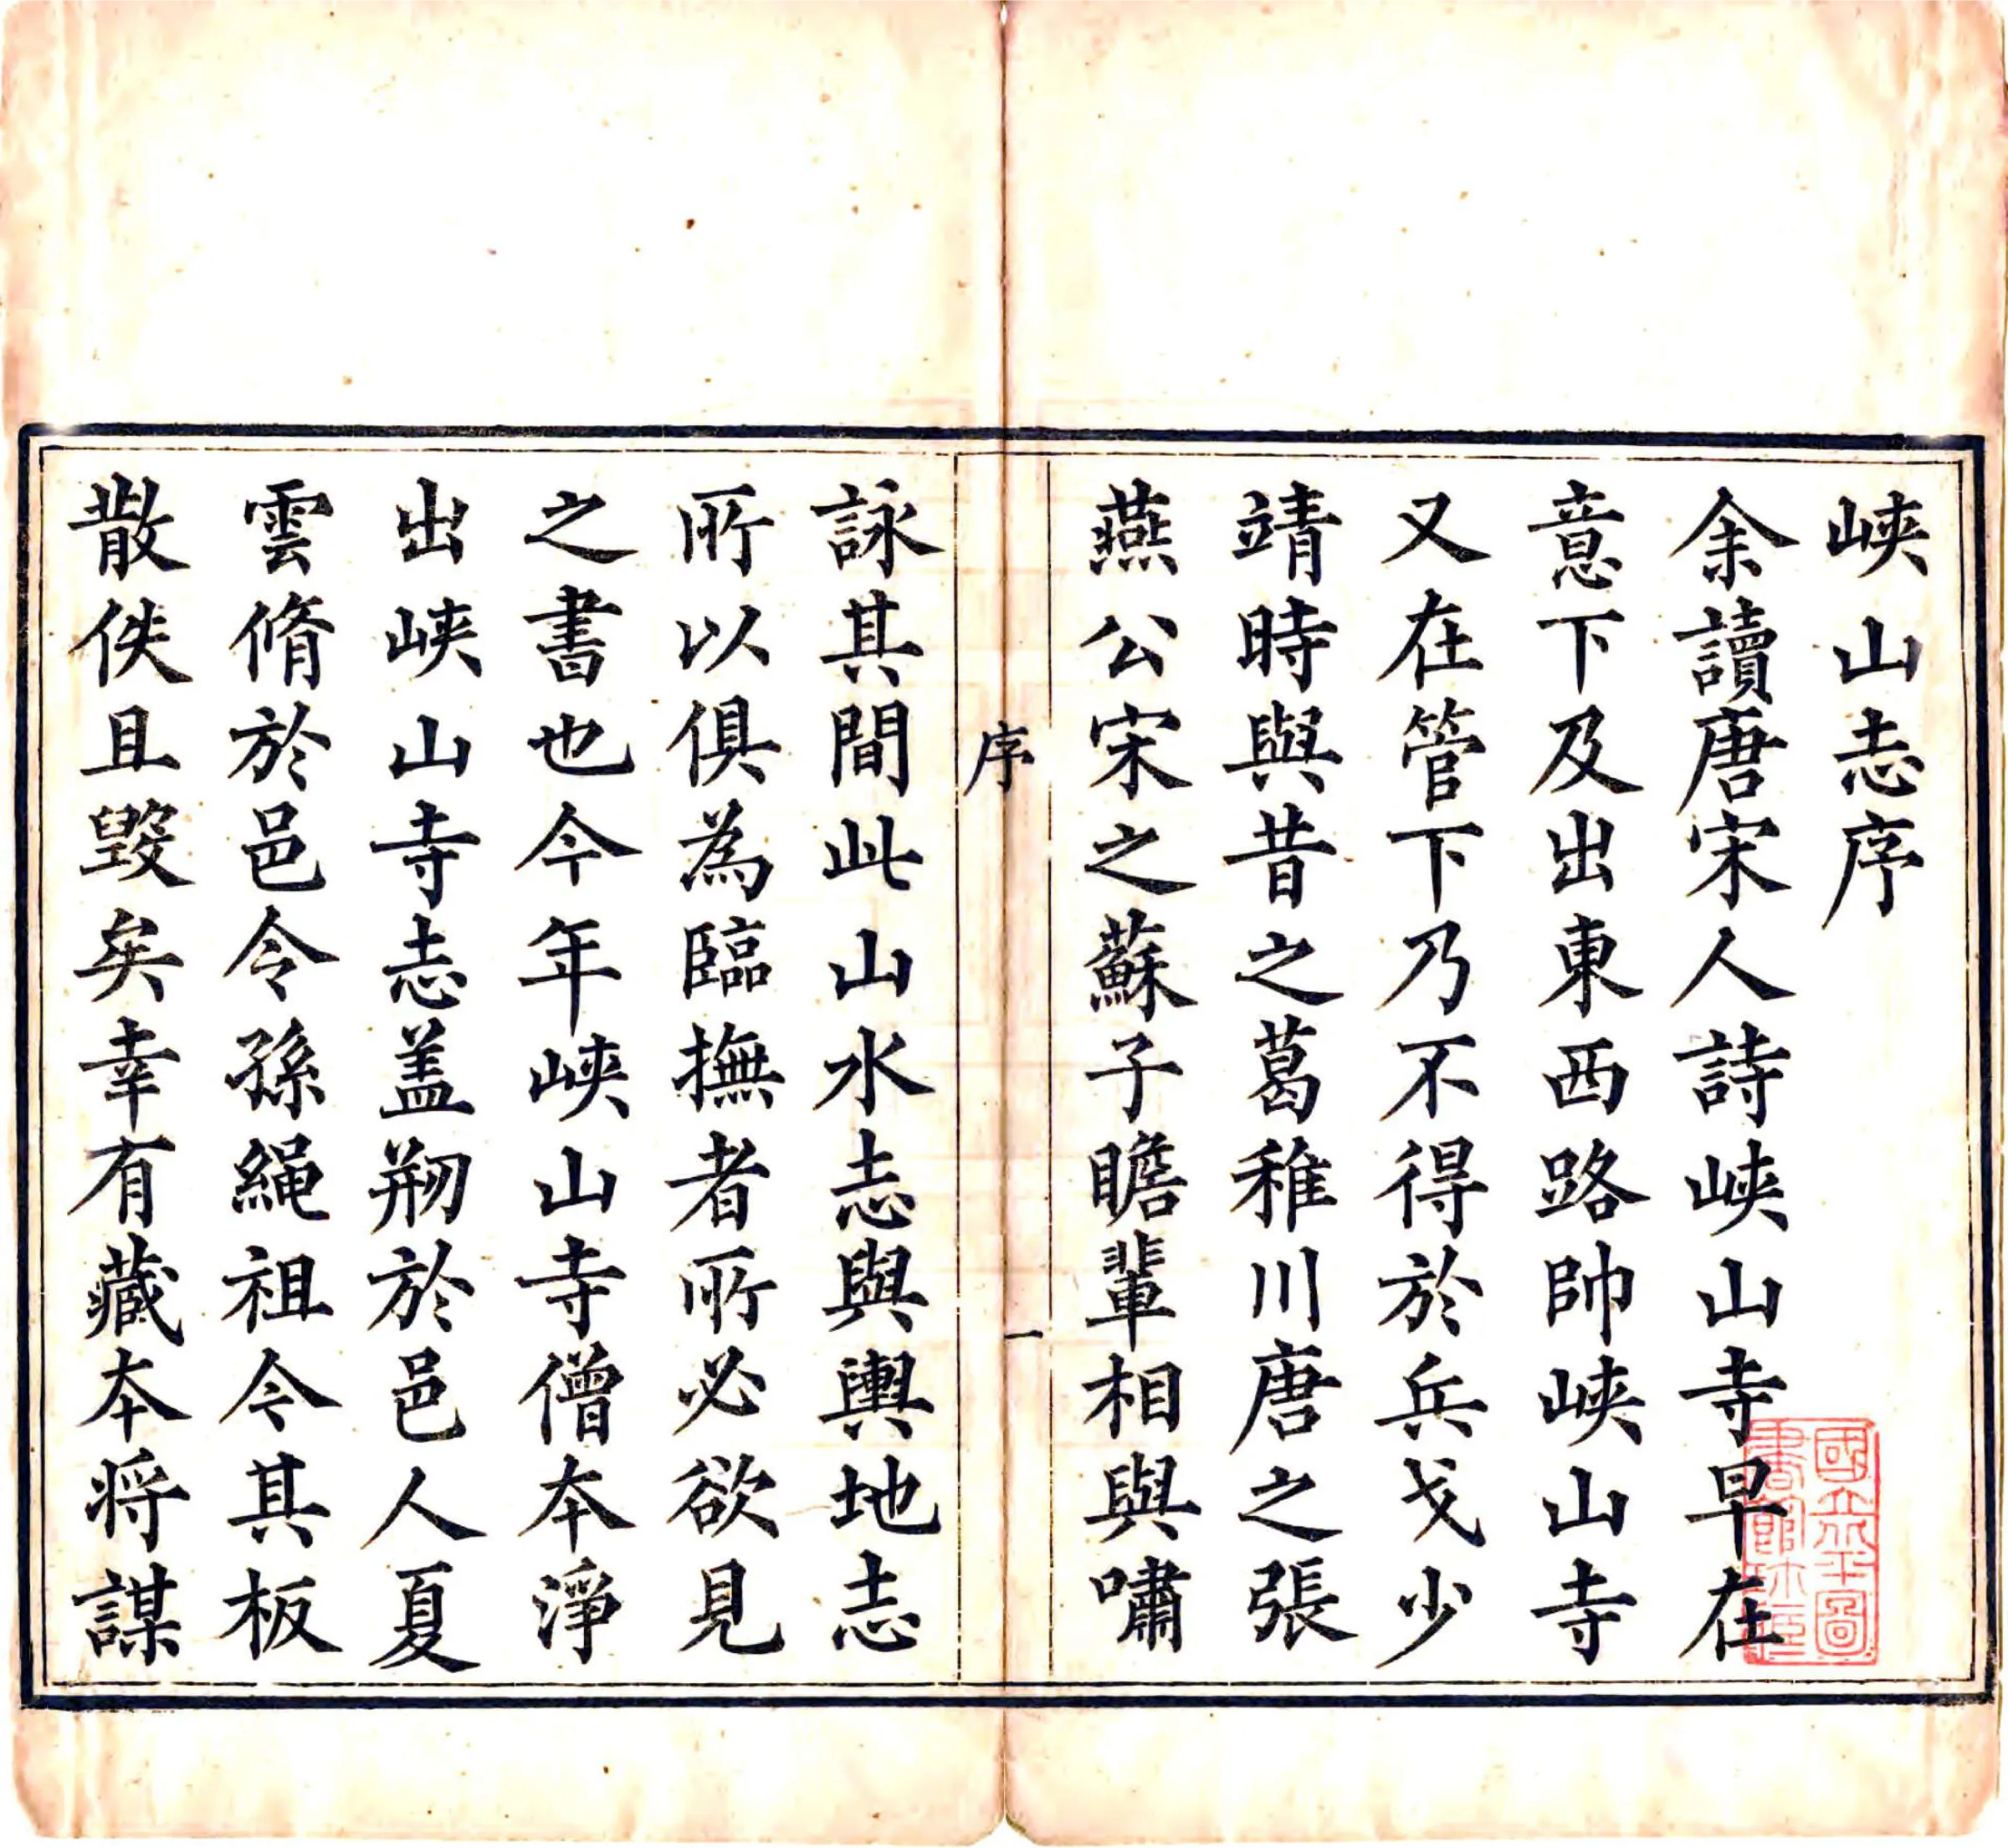 峽山志序
余讀唐宋人詩峽山寺早在
意下及出東西路帥峽山寺
又在管下乃不得於兵戈少
靖時與昔之葛稚川唐之張
燕公宋之蘇子瞻輩相與嘯
序
一
詠其間此山水志與輿地志
所以俱為臨撫者所必欲見
之書也今年峽山寺僧本淨
出峽山寺志盖剏於邑人夏
雲脩於邑令孫繩祖今其板
散佚且毀矣幸有藏本将謀
國立北平圖
書館珍藏